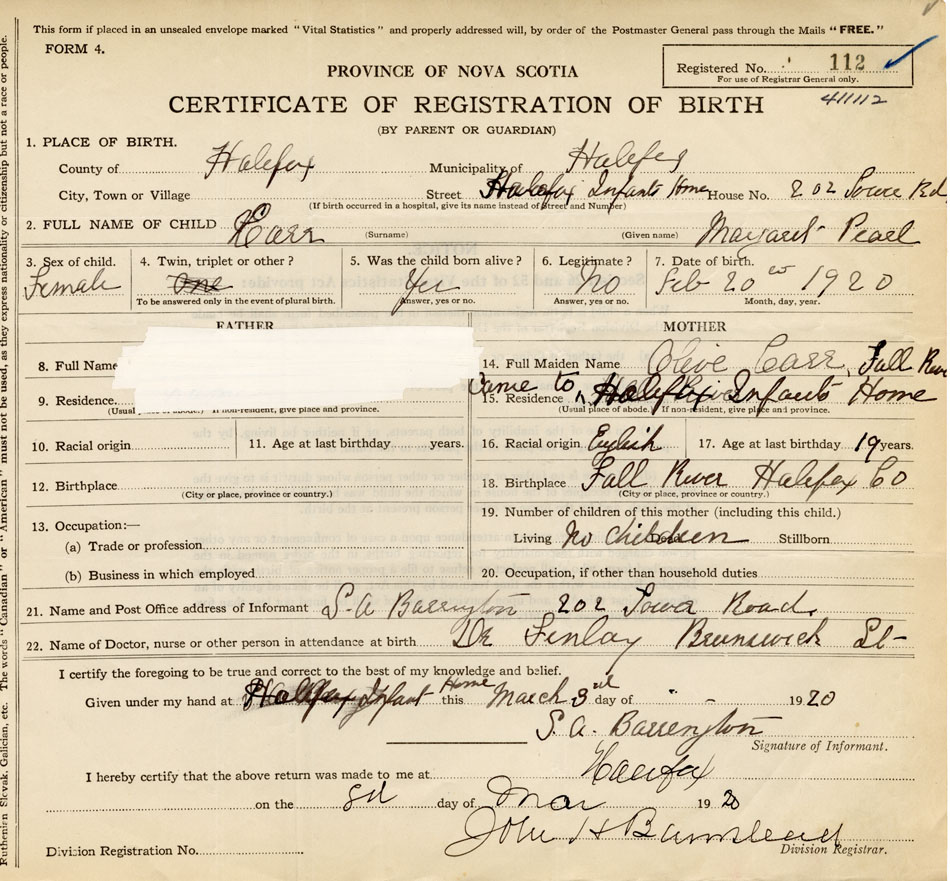 This form if placed in an unsealed envelope marked "Vital Statistics" and properly addressed will, by order of the Postmaster General pass through the Mails "FREE."
FORM 4.
Registered No. 112
For use of Registrar General only.
411112
PROVINCE OF NOVA SCOTIA
CERTIFICATE OF REGISTRATION OF BIRTH
(BY PARENT OR GUARDIAN)
1. PLACE OF BIRTH.
County of Halifax Municipality of Halifax
City, Town or Village Street Halifax Infants Home House No. 202 Tower Rd
(If birth occurred in a hospital, give its name instead of Street and Number)
2. FULL NAME OF CHILD Carr (Surname) (Given name) Margaret Pearl
3. Sex of child. 4. Twin, triplet or other? 5. Was the child born alive? 6. Legitimate? 7. Date of birth.
Female One Yes No Feb 20 1920
To be answered only in the event of plural birth. Answer, yes or no. Answer, yes or no. Month, day, year.
FATHER MOTHER
8. Full Name 14. Full Maiden Name Olive Carr, Fall River
Came to
9. Residence 15. Residence Halifax Infants Home
(Usual place of abode. If non-resident, give place and province. (Usual place of abode. If non-resident, give place and province.
10. Racial origin 11. Age at last birthday years. 16. Racial origin English 17. Age at last birthday 19 years.
12. Birthplace 18. Birthplace Fall River Halifax Co
(City or place, province or country.) (City or place, province or country.)
13. Occupation:— 19. Number of children of this mother (including this child.)
(a) Trade or profession Living No children Dead Stillborn
(b) Business in which employed 20. Occupation, if other than household duties
21. Name and Post Office address of Informant S. A Barrington 202 Tower Road.
22. Name of Doctor, nurse or other person in attendance at birth Dr Finlay Brunswick St-
I certify the foregoing to be true and correct to the best of my knowledge and belief.
Given under my hand at Halifax Infant Home this March 3rd day of 1920
S. A. Barrington
Signature of Informant.
I hereby certify that the above return was made to me at Halifax
on the day of Mar 1920
John H Barnstead
Division Registration No. Division Registrar.
Ruthenian Slovak, Galician, etc. The words "Canadian" or "American" must not be used, as they express nationality or citizenship but not a race or people.